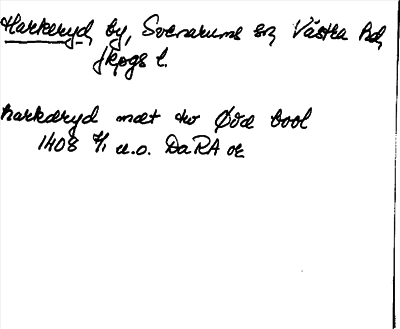 Harkeryd, by, Svenarums sn, Västra hd,
Jkpgs l.
harkæryd mæt tw Øde bool
1408 7/1 u.o. DaRA or